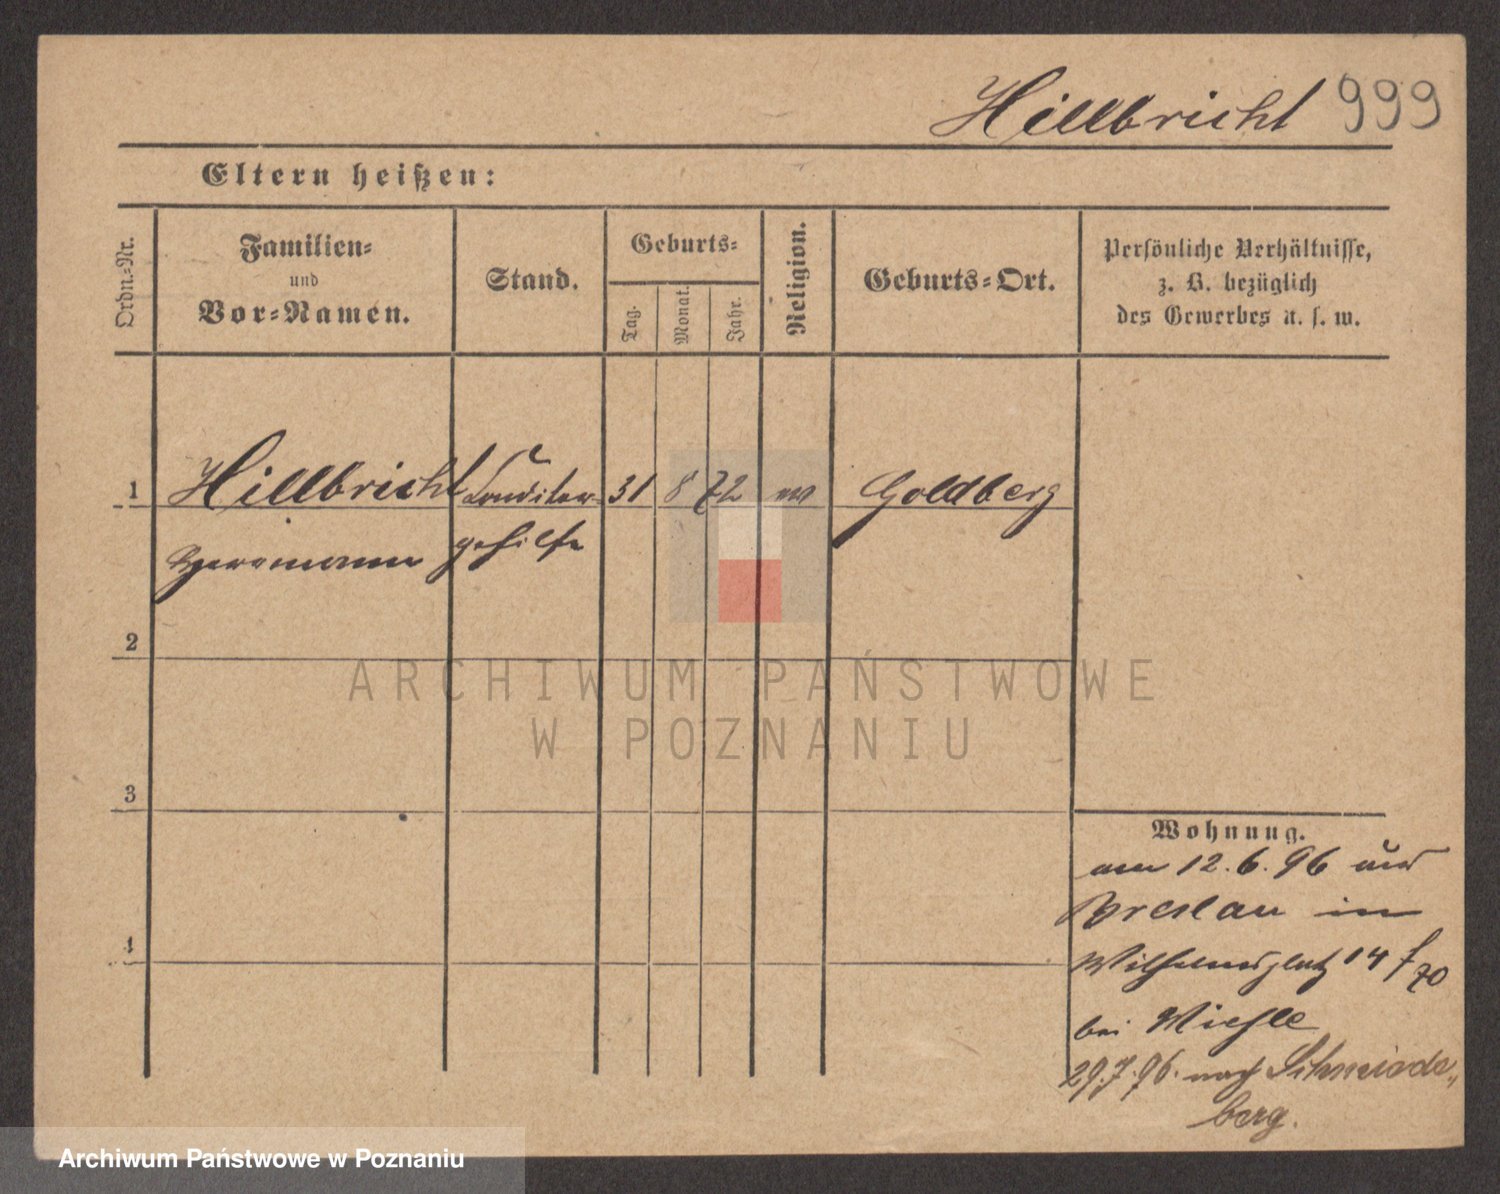 Hillbricht 999
Eltern heißen:
Ordn.-Nr.
Familien-
und
Vor-Namen.
Stand.
Geburts-
Tag.
Monat.
Jahr.
Religion.
Geburts-Ort.
Persönliche Verhältnisse,
z. B. bezüglich
des Gewerbes u. s. w.
1 Hillbricht Conditor- 31 8 72 Goldberg
Herrmann gehilfe
2
ARCHIWUM PAŃSTWOWE
W POZNANIU
3
Wohnung.
am 12.6.96 aus
Breslau in
4
Wilhelmsplatz 14
bei Wiehle
29.7.96. nach Schmiede-
berg.
Archiwum Państwowe w Poznaniu